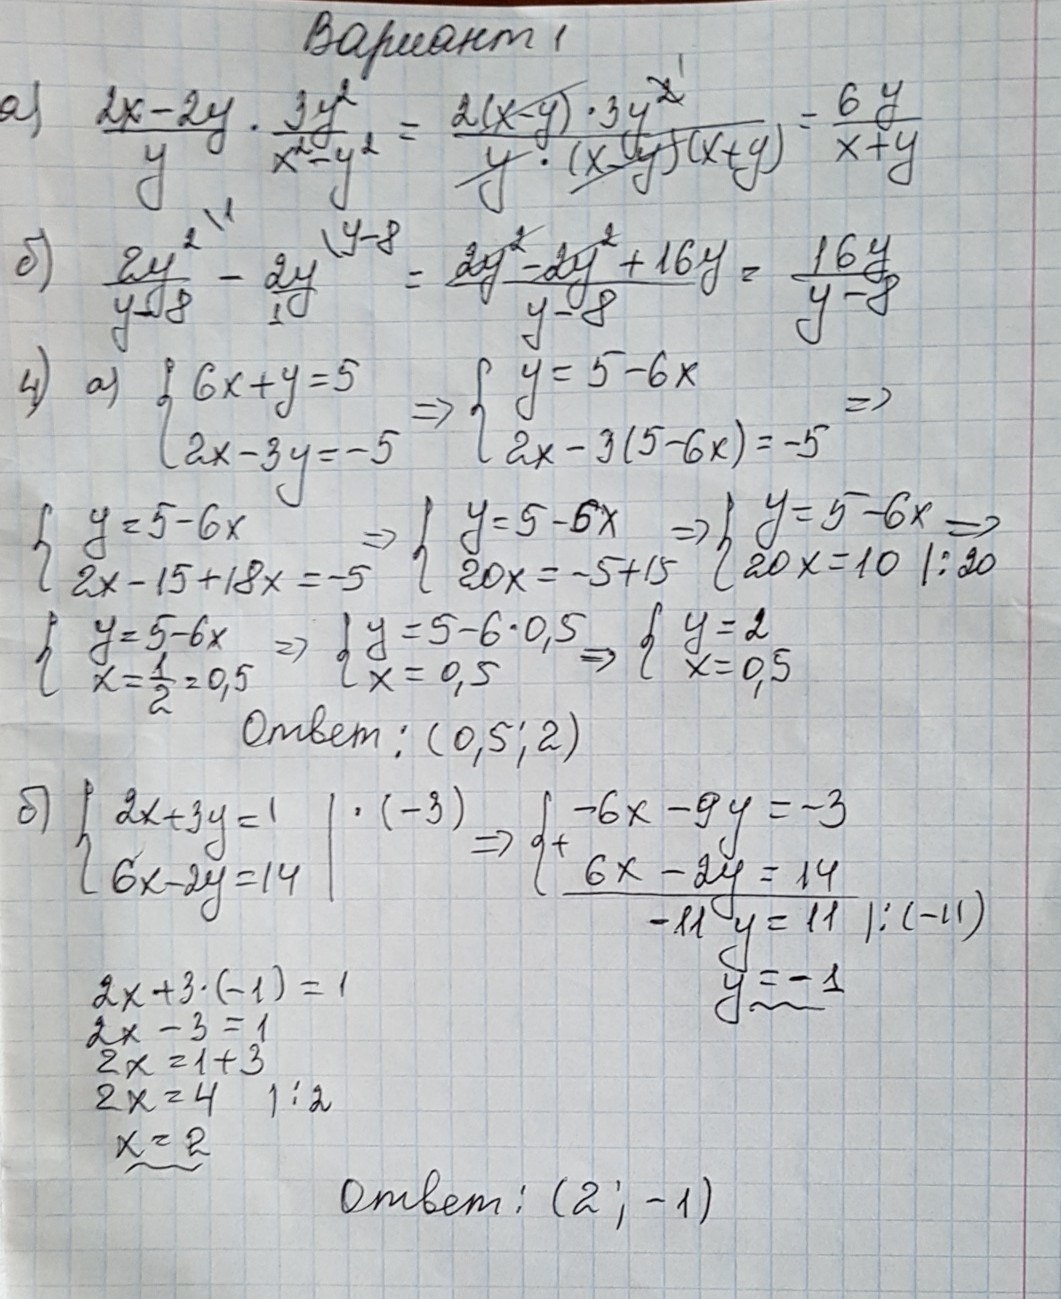 Вариант 1
а) (2x-2y)/y · 3y²/(x²-y²) = (2(x-y)·3y²)/(y·(x-y)(x+y)) = 6y/(x+y)
б) 2y²/(y-8) \1 - 2y/1 \y-8 = (2y²-2y²+16y)/(y-8) = 16y/(y-8)
4) а) { 6x+y=5 ; 2x-3y=-5 => { y=5-6x ; 2x-3(5-6x)=-5 =>
{ y=5-6x ; 2x-15+18x=-5 => { y=5-6x ; 20x=-5+15 => { y=5-6x ; 20x=10 |:20 =>
{ y=5-6x ; x=1/2=0,5 => { y=5-6·0,5 ; x=0,5 => { y=2 ; x=0,5
Ответ: (0,5; 2)
б) { 2x+3y=1 |·(-3) ; 6x-2y=14 | => {+ -6x-9y=-3 ; 6x-2y=14
-11y=11 |:(-11)
y=-1
2x+3·(-1)=1
2x-3=1
2x=1+3
2x=4 |:2
x=2
Ответ: (2; -1)